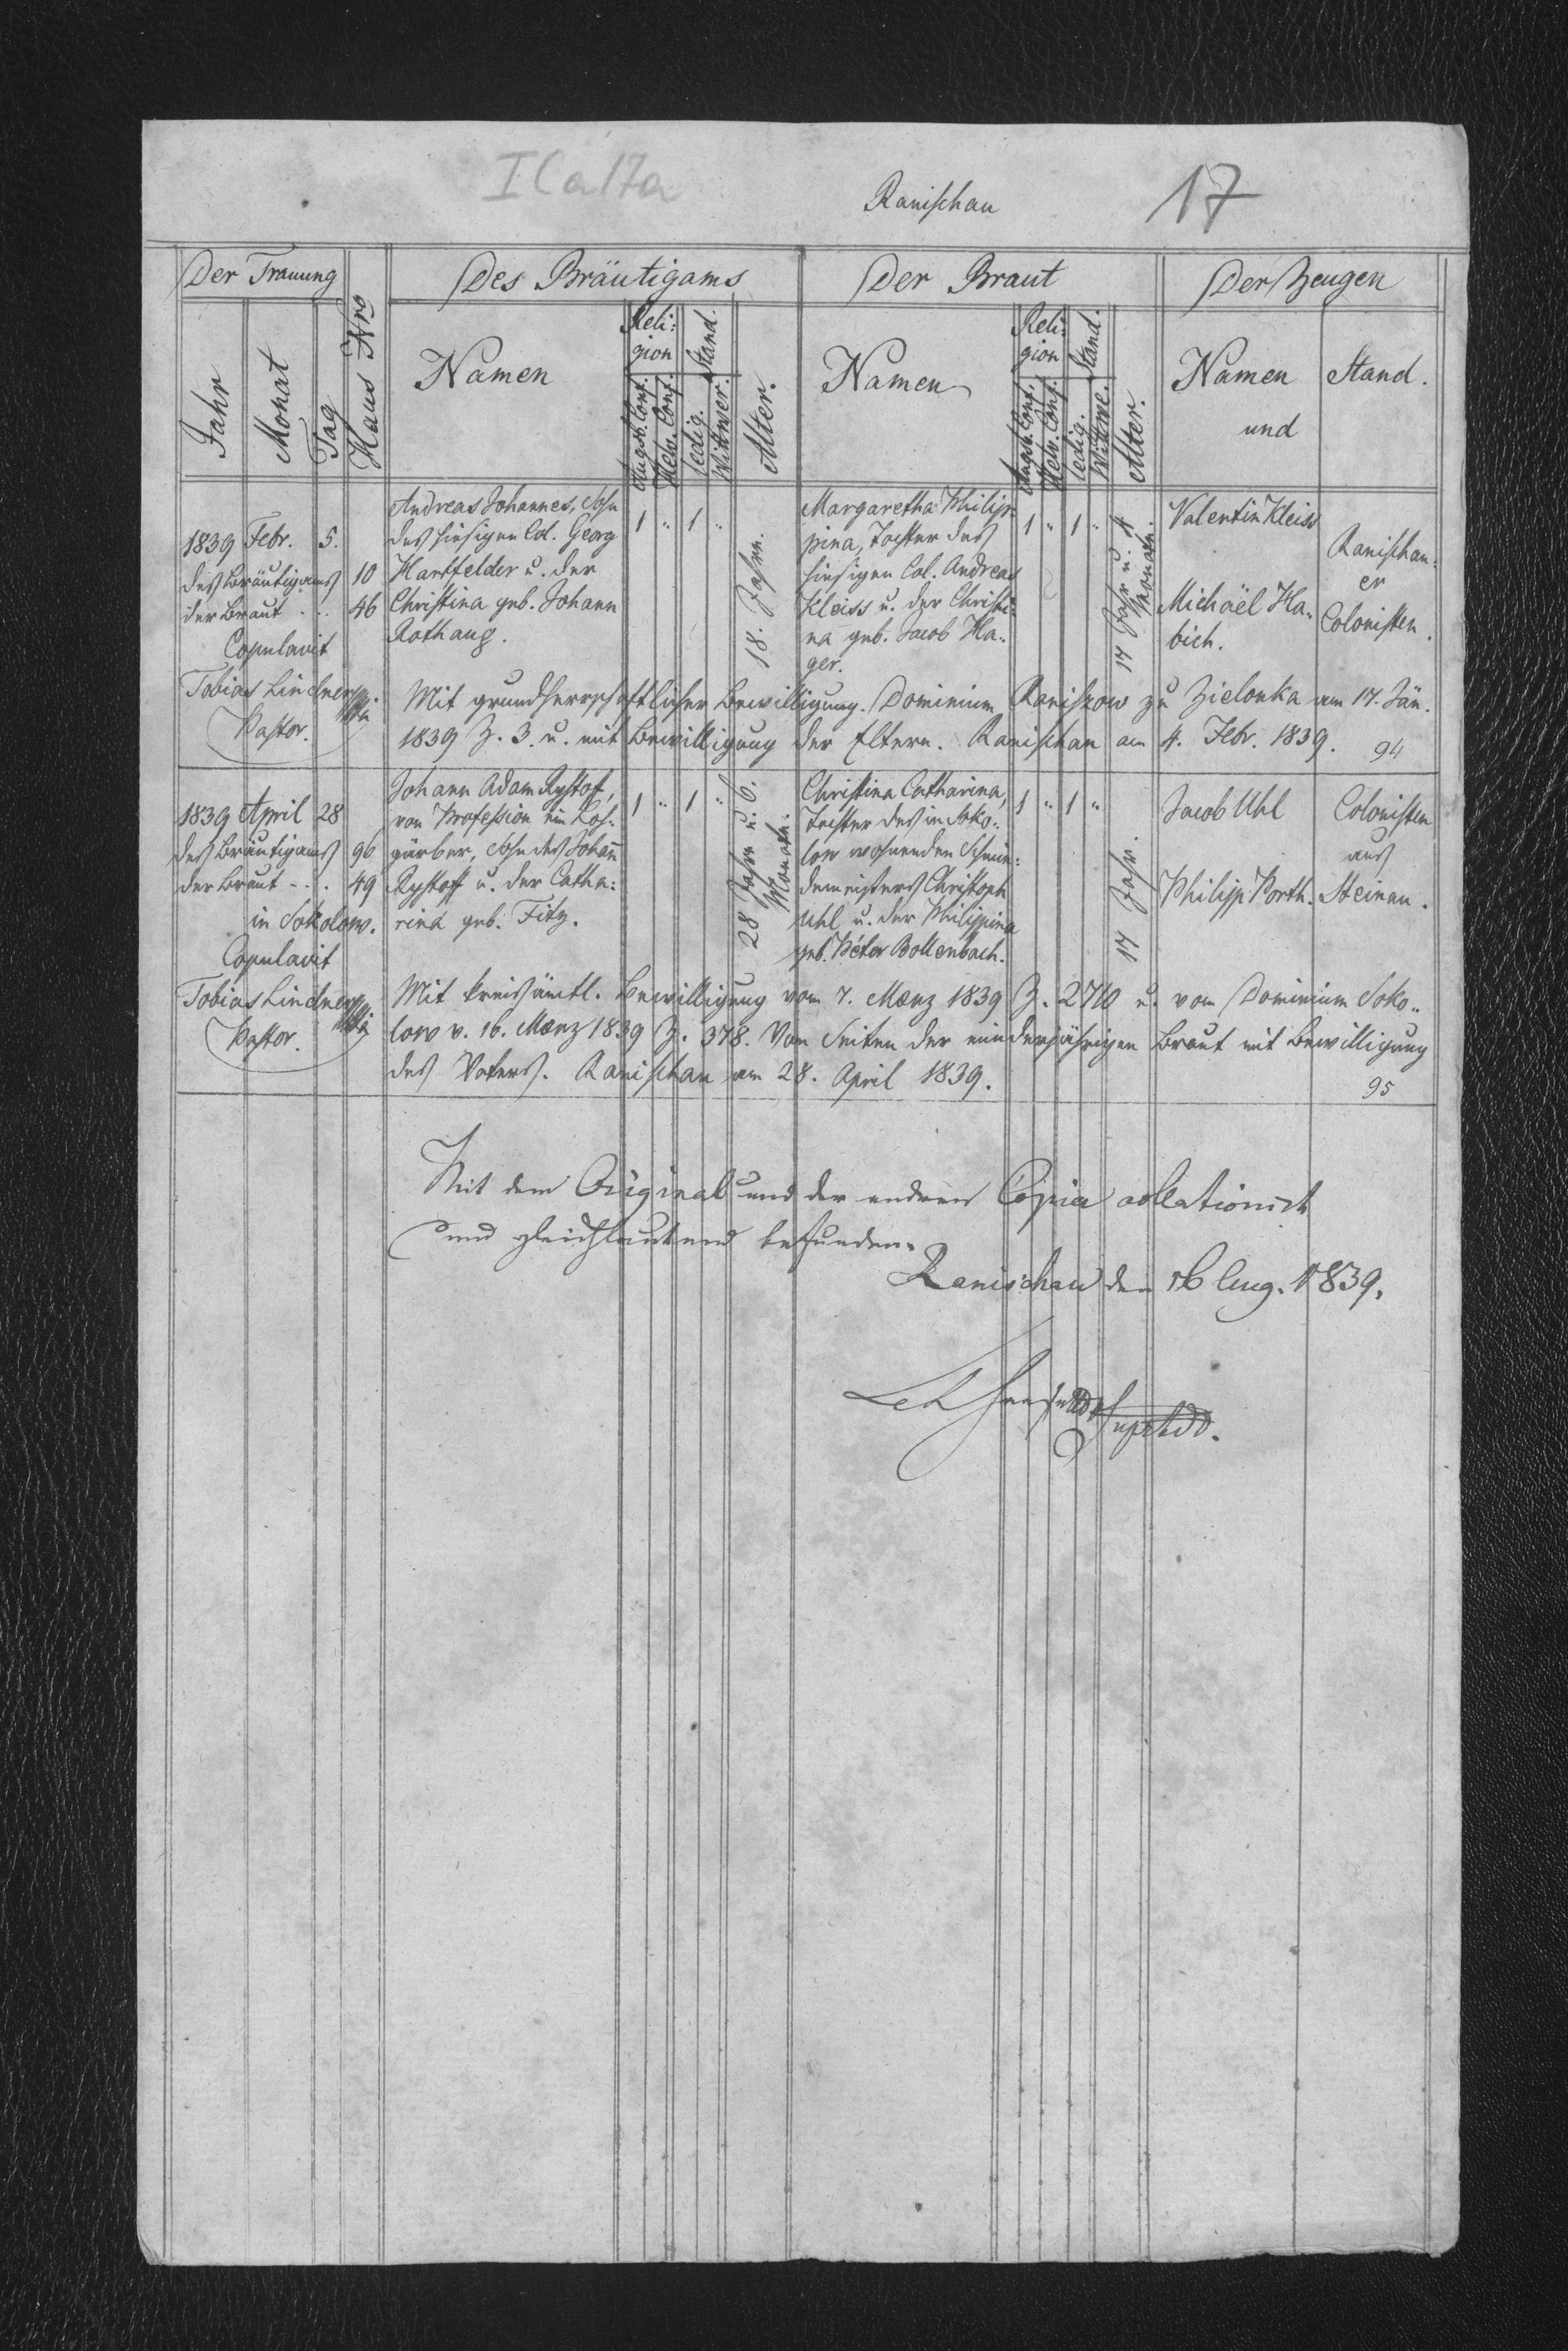 I C a 17a
Ranischau
17
Der Trauung
Haus Nro
Des Bräutigams
Der Braut
Der Zeugen
Jahr
Monat
Tag
Namen
Reli:
gion
Stand.
Augsb. Conf.
Helv. Conf.
ledig.
Wittwer.
Alter.
Namen
Reli:
gion
Stand.
Augsb. Conf.
Helv. Conf.
ledig.
Wittwe.
Alter.
Namen
und
Stand.
1839 Febr. 5.
des Bräutigams 10
der Braut . . . 46
Copulavit
Tobias Lindner
Pastor.
Andreas Johannes, Sohn
des hiesigen Col. Georg
Hartfelder u. der
Christina geb. Johann
Rothaug.
1 " 1 "
18. Jahre.
Margaretha Philip
pina, Tochter des
hiesigen Col. Andreas
Kleiss u. der Christi:
na geb. Jacob Ha:
ger.
1 " 1 "
17 Jahr u. 4
Monate.
Valentin Kleiss
Michäel Ha:
bich.
Ranischau:
er
Colonisten.
Mit grundherrschaftlicher Bewilligung. Dominium Raniszow zu Zielonka am 17. Jän.
1839 Z. 3. u. mit Bewilligung der Eltern. Ranischau am 4. Febr. 1839.
94
1839 April 28
des Bräutigams 96
der Braut - . . 49
in Sokolow.
Copulavit
Tobias Lindner
Pastor.
Johann Adam Rystoff,
von Profession ein Loh:
gärber, Sohn des Johann
Rystoff u. der Catha:
rina geb. Fitz.
1 " 1 "
28 Jahre u. 6.
Monate.
Christina Catharina,
Tochter des in Soko:
low wohnenden Schmie:
demeisters Christoph
Uhl u. der Philippina
geb. Péter Bollenbach.
1 " 1 "
17 Jahr.
Jacob Uhl
Philipp Porth.
Colonisten
aus
Steinau.
Mit kreisämtl. Bewilligung vom 7. Mærz 1839 Z. 2710 u. vom Dominium Soko:
low v. 16. Mærz 1839 Z. 378. Von Seiten der minderjährigen Braut mit Bewilligung
des Vaters. Ranischau am 28. April 1839.
95
Mit dem Original und der andern Copia collationirt
und gleichlautend befunden.
Ranischau den 16 Aug. 1839.